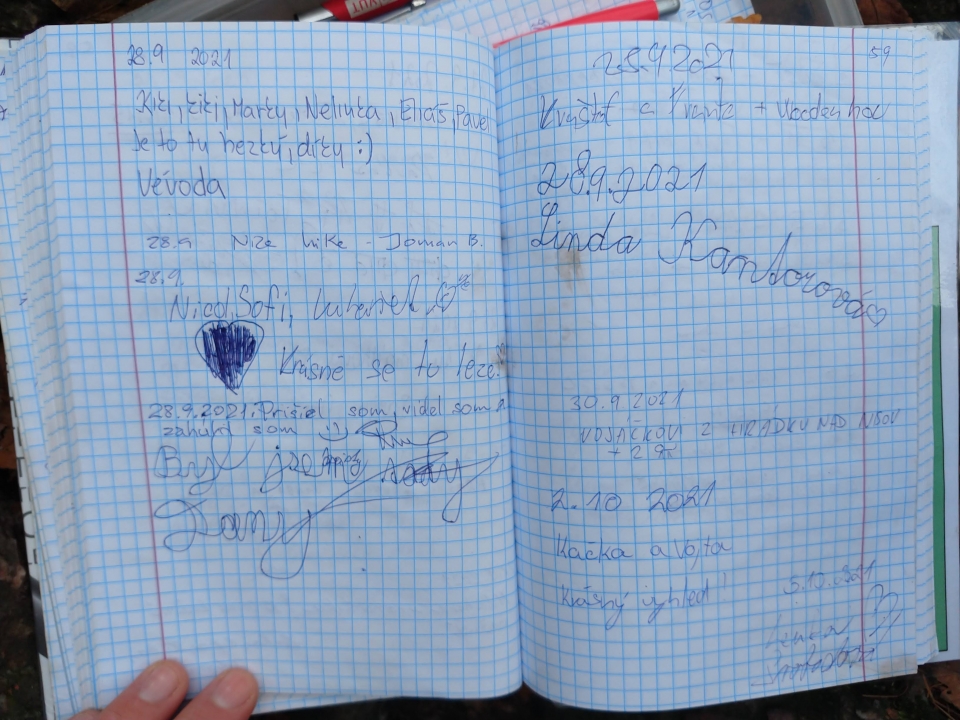 28.9 2021
Kiki, Kiki, Marky, Nelinka, Eliáš, Pavel
Je to tu hezký, díky :)
Vévoda
28.9 Nize hike - Joman B.
28.9.
Nicol, Sofi,
Krásně se to leze!
28.9.2021. Prišiel som, videl som a
zahúlil som
Byl jsem tady
Dany
59
28.9 2021
Kryštof a + Woodenhou
28.9.2021
Linda Kantorová
30.9.2021
VOJÁČKOVI Z HRÁDKU NAD NISOU
+ 2
2.10 2021
Kačka a Vojta
Krásný výhled!
5.10.2021
Lenka